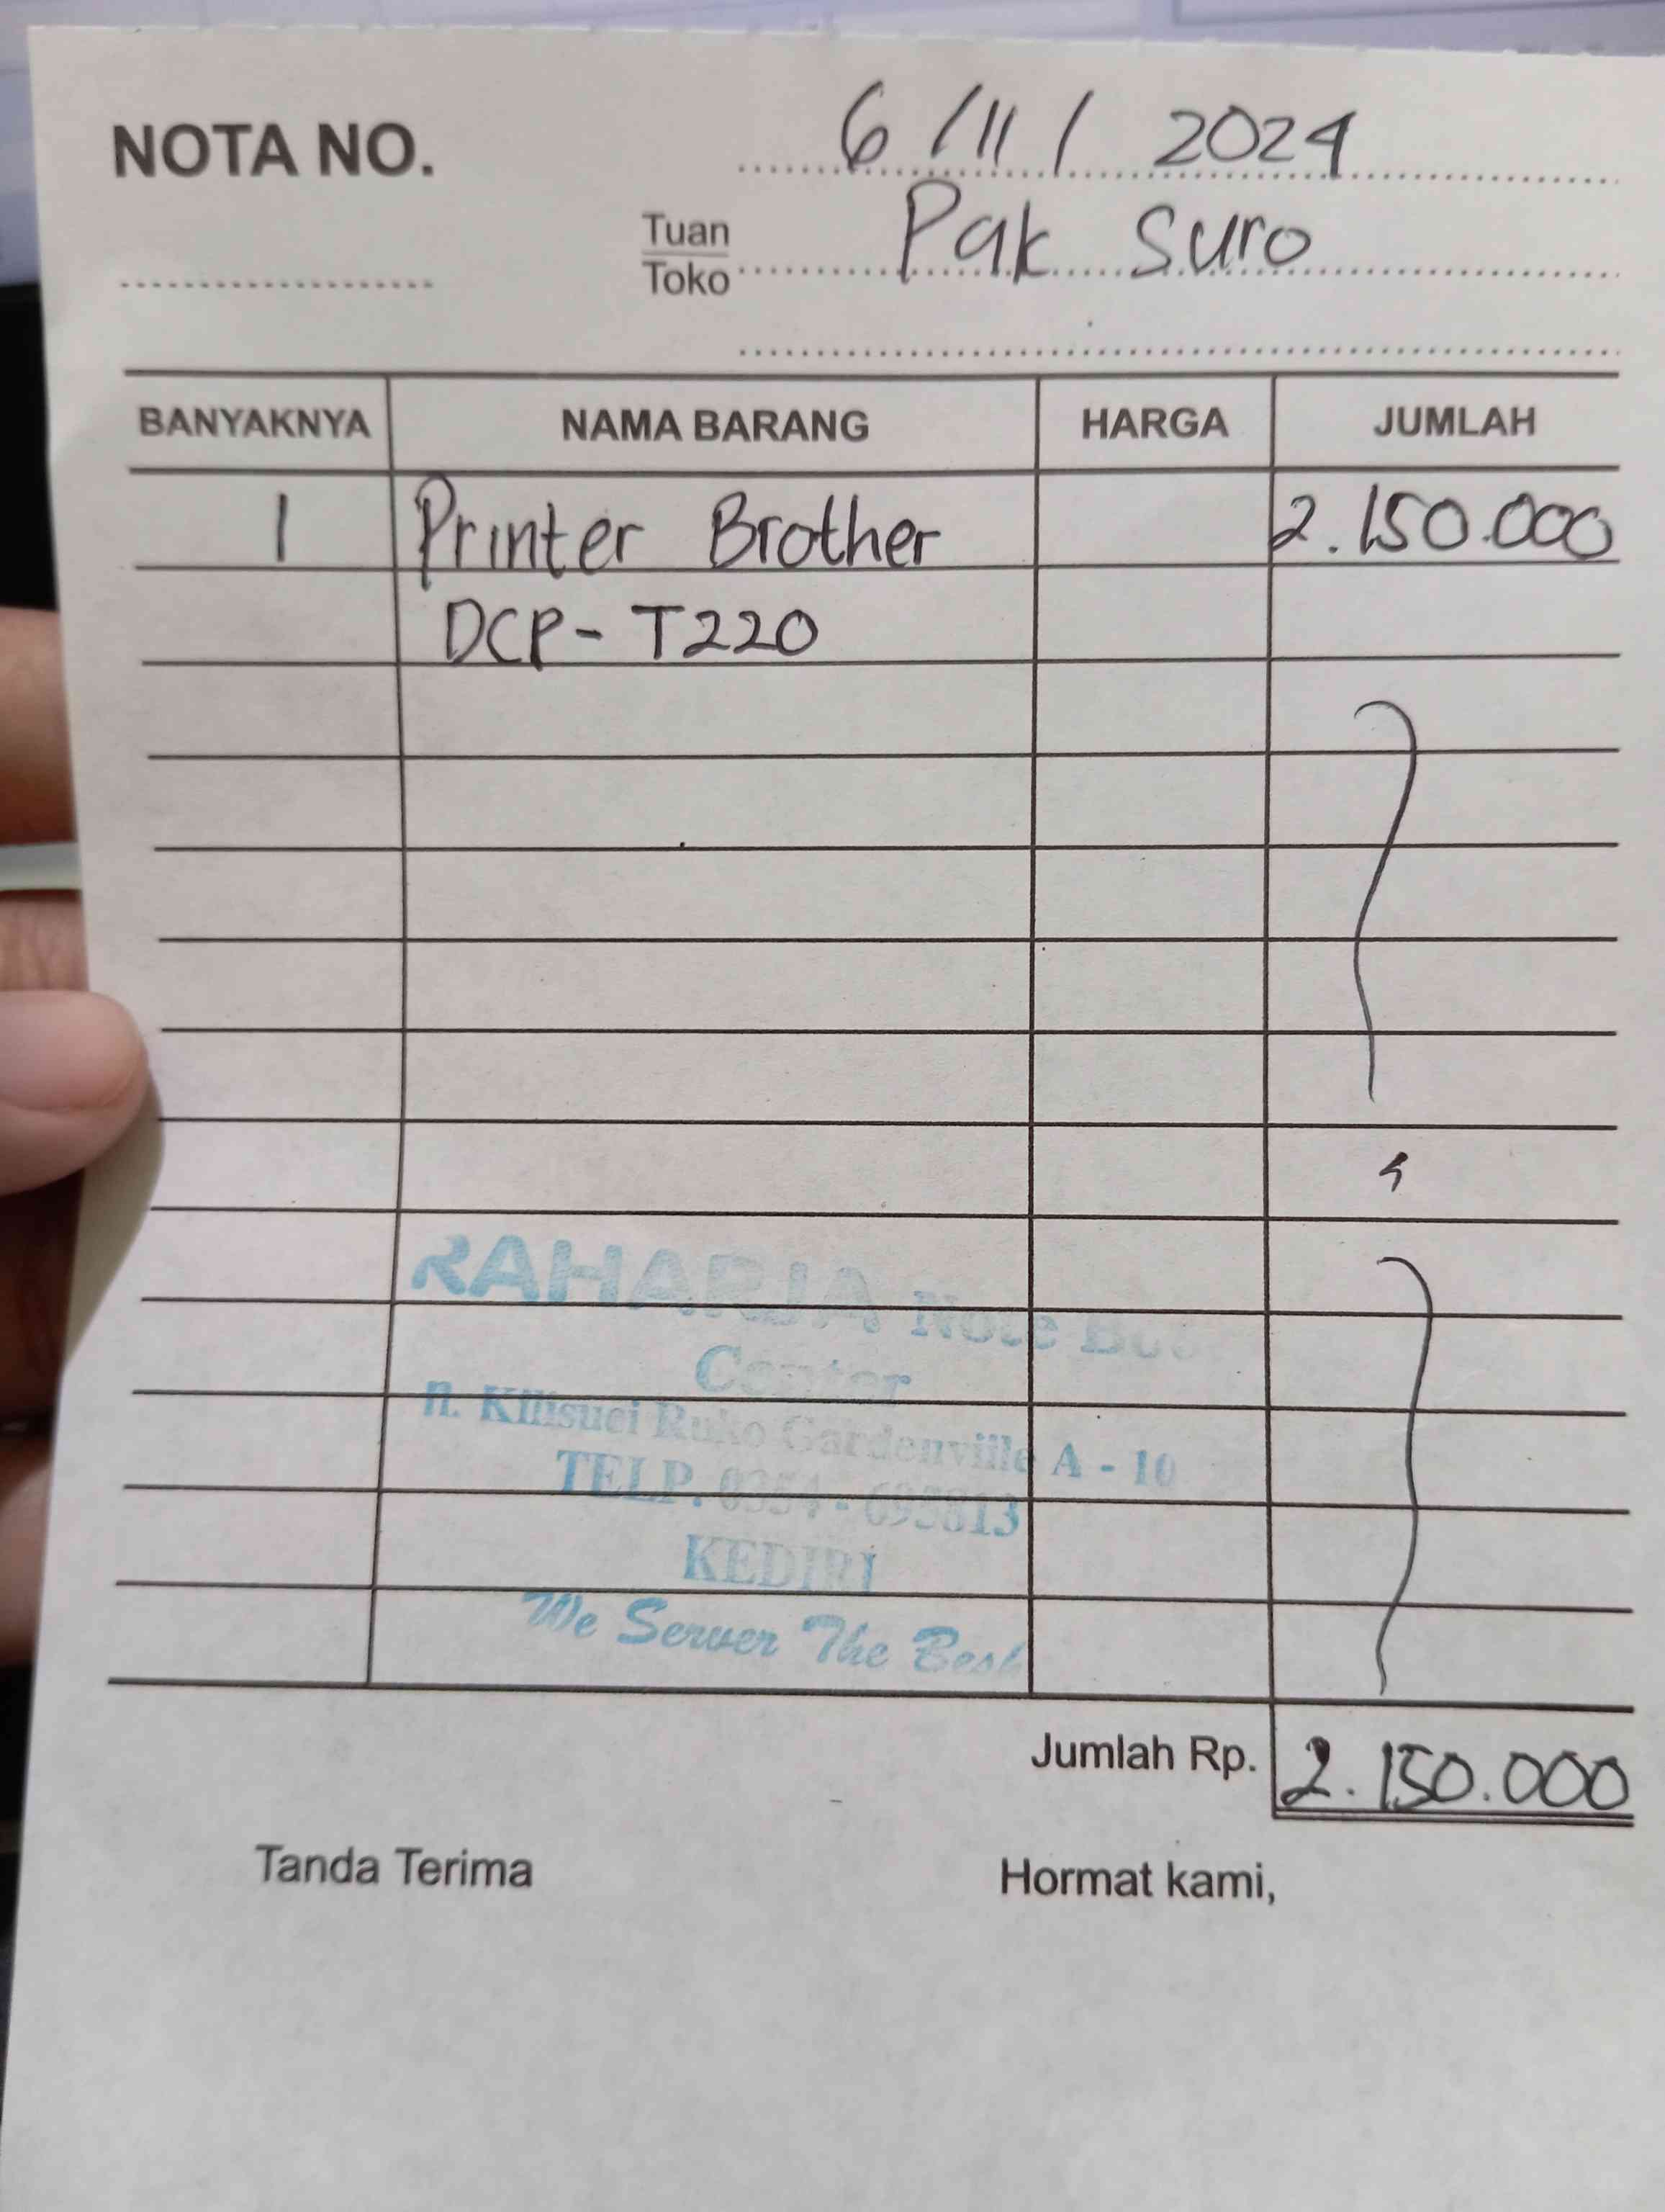 NOTA NO.
6/11/2024
Tuan
Toko
Pak Suro
BANYAKNYA NAMA BARANG HARGA JUMLAH
1 Printer Brother 2.150.000
DCP-T220
RAHARJA Note Boo
Center
Jl. Kilisuci Ruko Gardenville A - 10
TELP. 0354 - 695813
KEDIRI
We Server The Best
Jumlah Rp. 2.150.000
Tanda Terima Hormat kami,